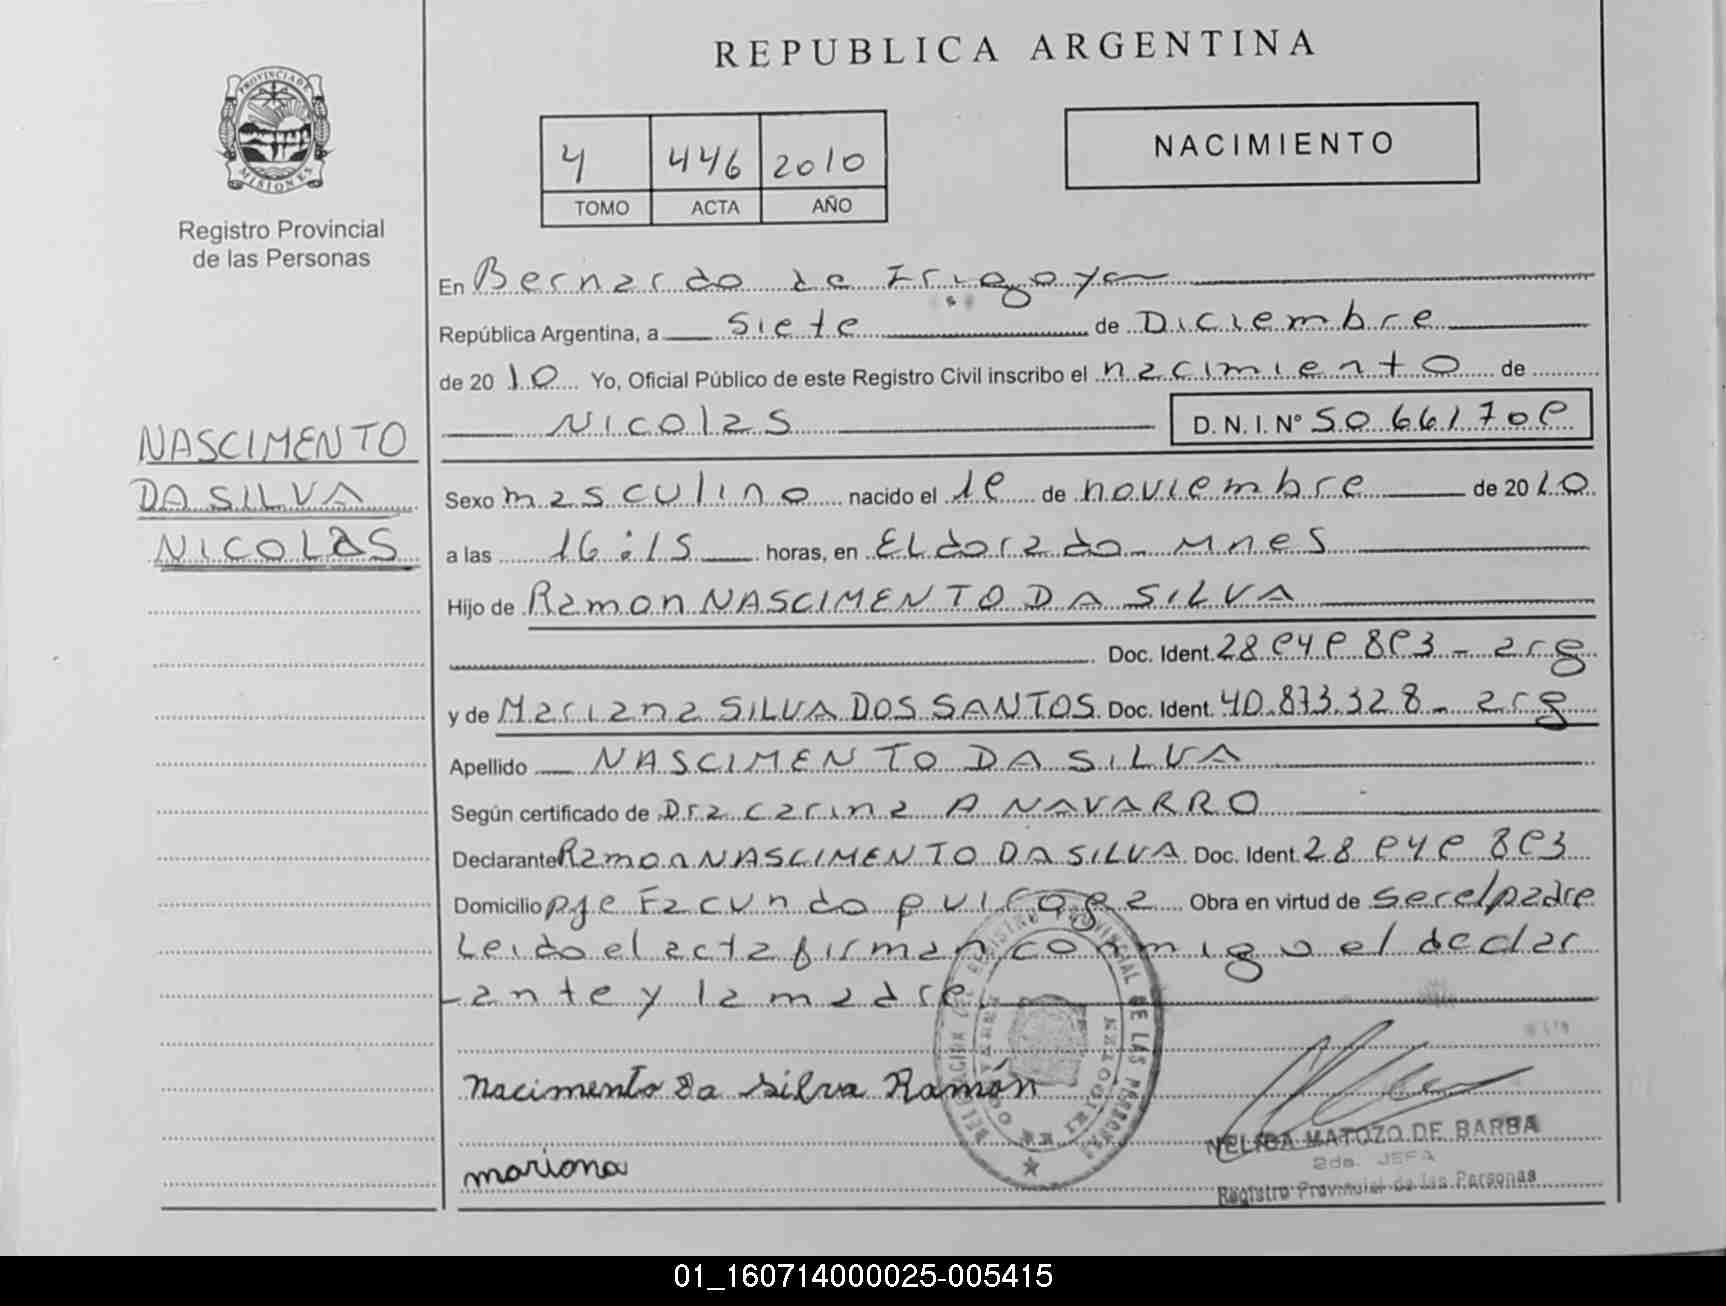 REPUBLICA ARGENTINA
PROVINCIA DE
MISIONES
Registro Provincial
de las Personas
4 446 2010
TOMO ACTA AÑO
NACIMIENTO
NASCIMENTO
DA SILVA
NICOLAS
En Bernardo de Irigoyen
República Argentina, a siete de Diciembre
de 2010 Yo, Oficial Público de este Registro Civil inscribo el nacimiento de
Nicolas D.N.I. Nº 50.661.709
Sexo masculino nacido el 19 de noviembre de 2010
a las 16:15 horas, en Eldorado Mnes
Hijo de Ramon NASCIMENTO DA SILVA
Doc. Ident. 28 949 893 - arg
y de Mariana SILVA DOS SANTOS Doc. Ident. 40.873.328 - arg
Apellido NASCIMENTO DA SILVA
Según certificado de Dra Carina A NAVARRO
Declarante Ramon NASCIMENTO DA SILVA Doc. Ident. 28 949 893
Domicilio pje Facundo quiroga Obra en virtud de ser el padre
Leido el acta firman conmigo el declar
ante y la madre
Nacimento Da Silva Ramón
mariana
NELIDA MATOZO DE BARBA
2da. JEFA
Registro Provincial de las Personas
01_160714000025-005415